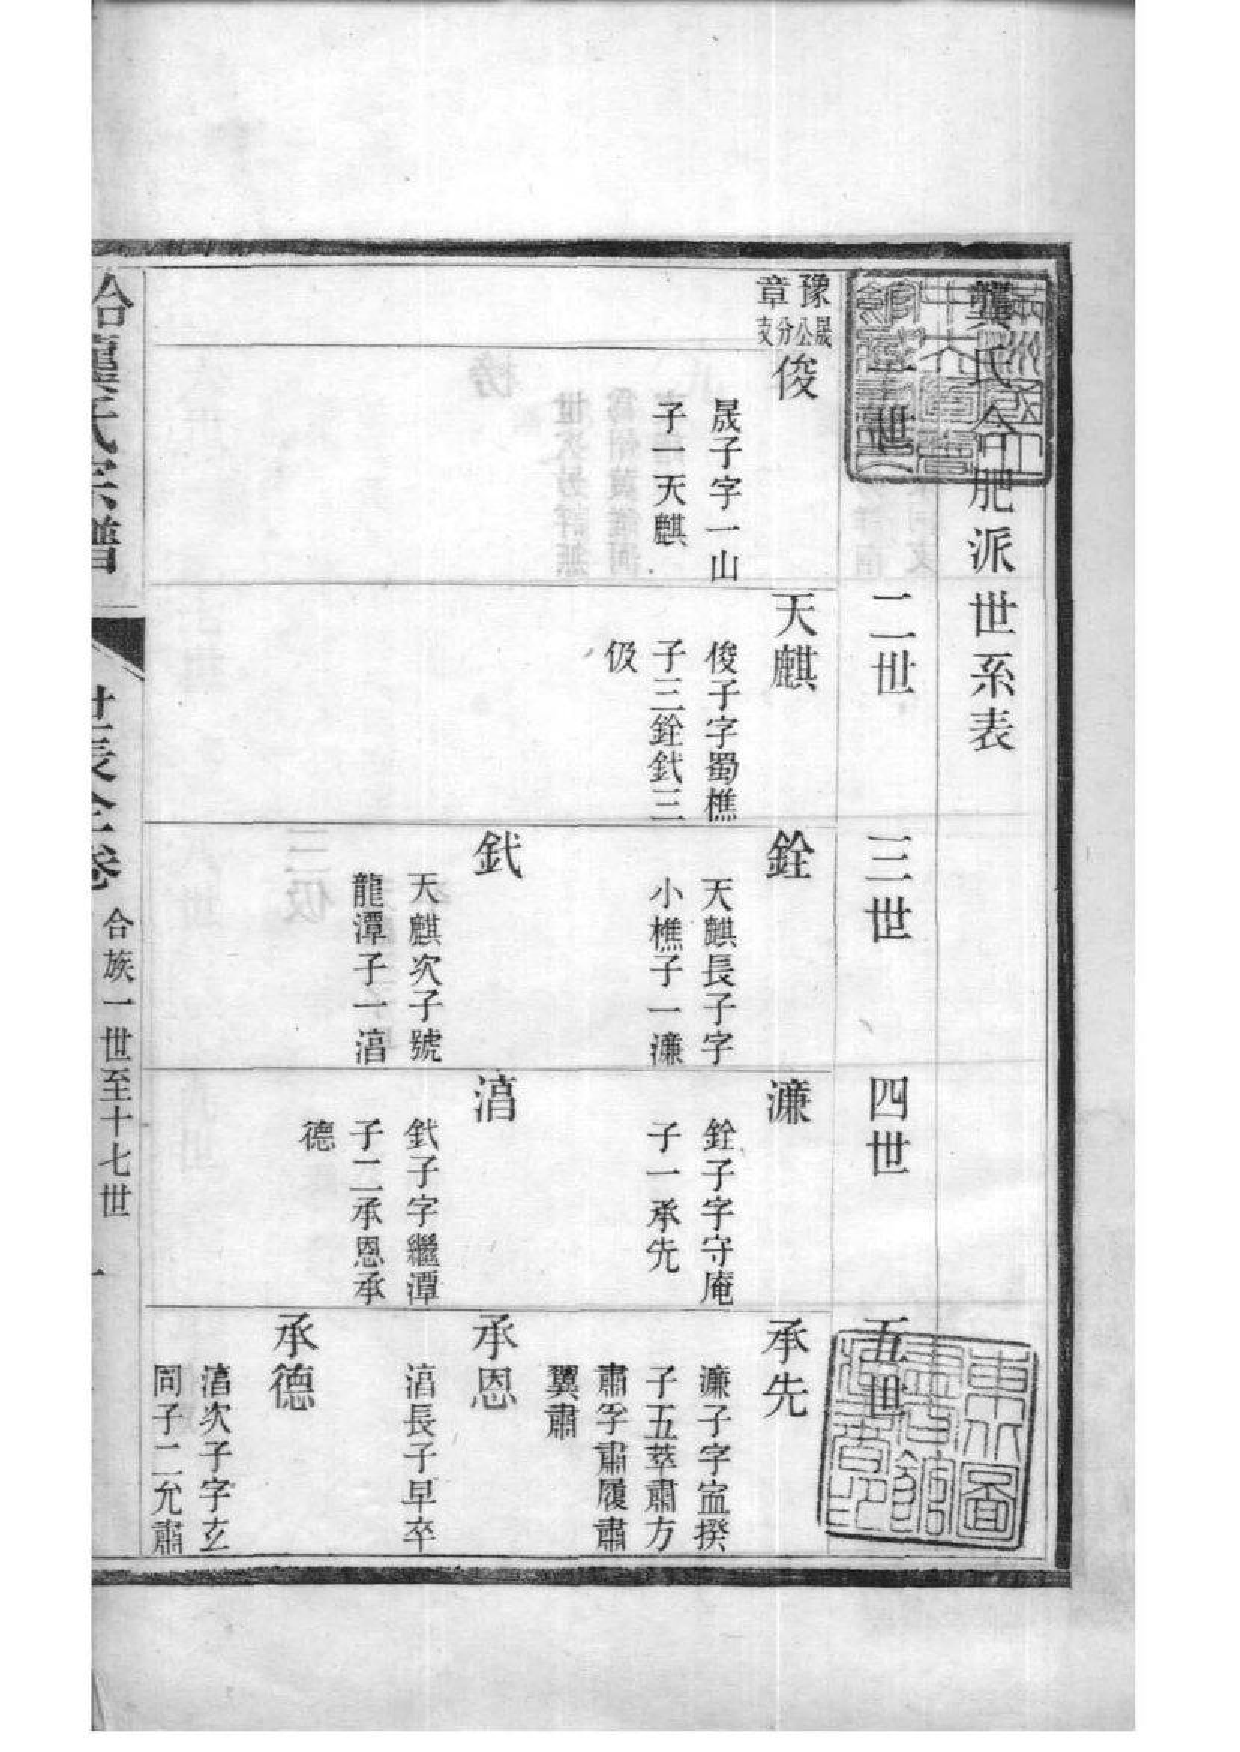 龔氏合肥派世系表
一世
二世
三世
四世
五世
豫章
晟公分支
俊
晟子字一山
子一天麒
天麒
俊子字蜀樵
子三銓釴三
伋
銓
天麒長子字
小樵子一濂
釴
天麒次子號
龍潭子一滆
濂
銓子字守庵
子一承先
滆
釴子字繼潭
子二承恩承
德
承先
濂子字宜揆
子五萃肅方
肅孚肅履肅
翼肅
承恩
滆長子早卒
承德
滆次子字玄
同子二允肅
合龔氏宗譜
世表全卷
合族一世至十七世
一